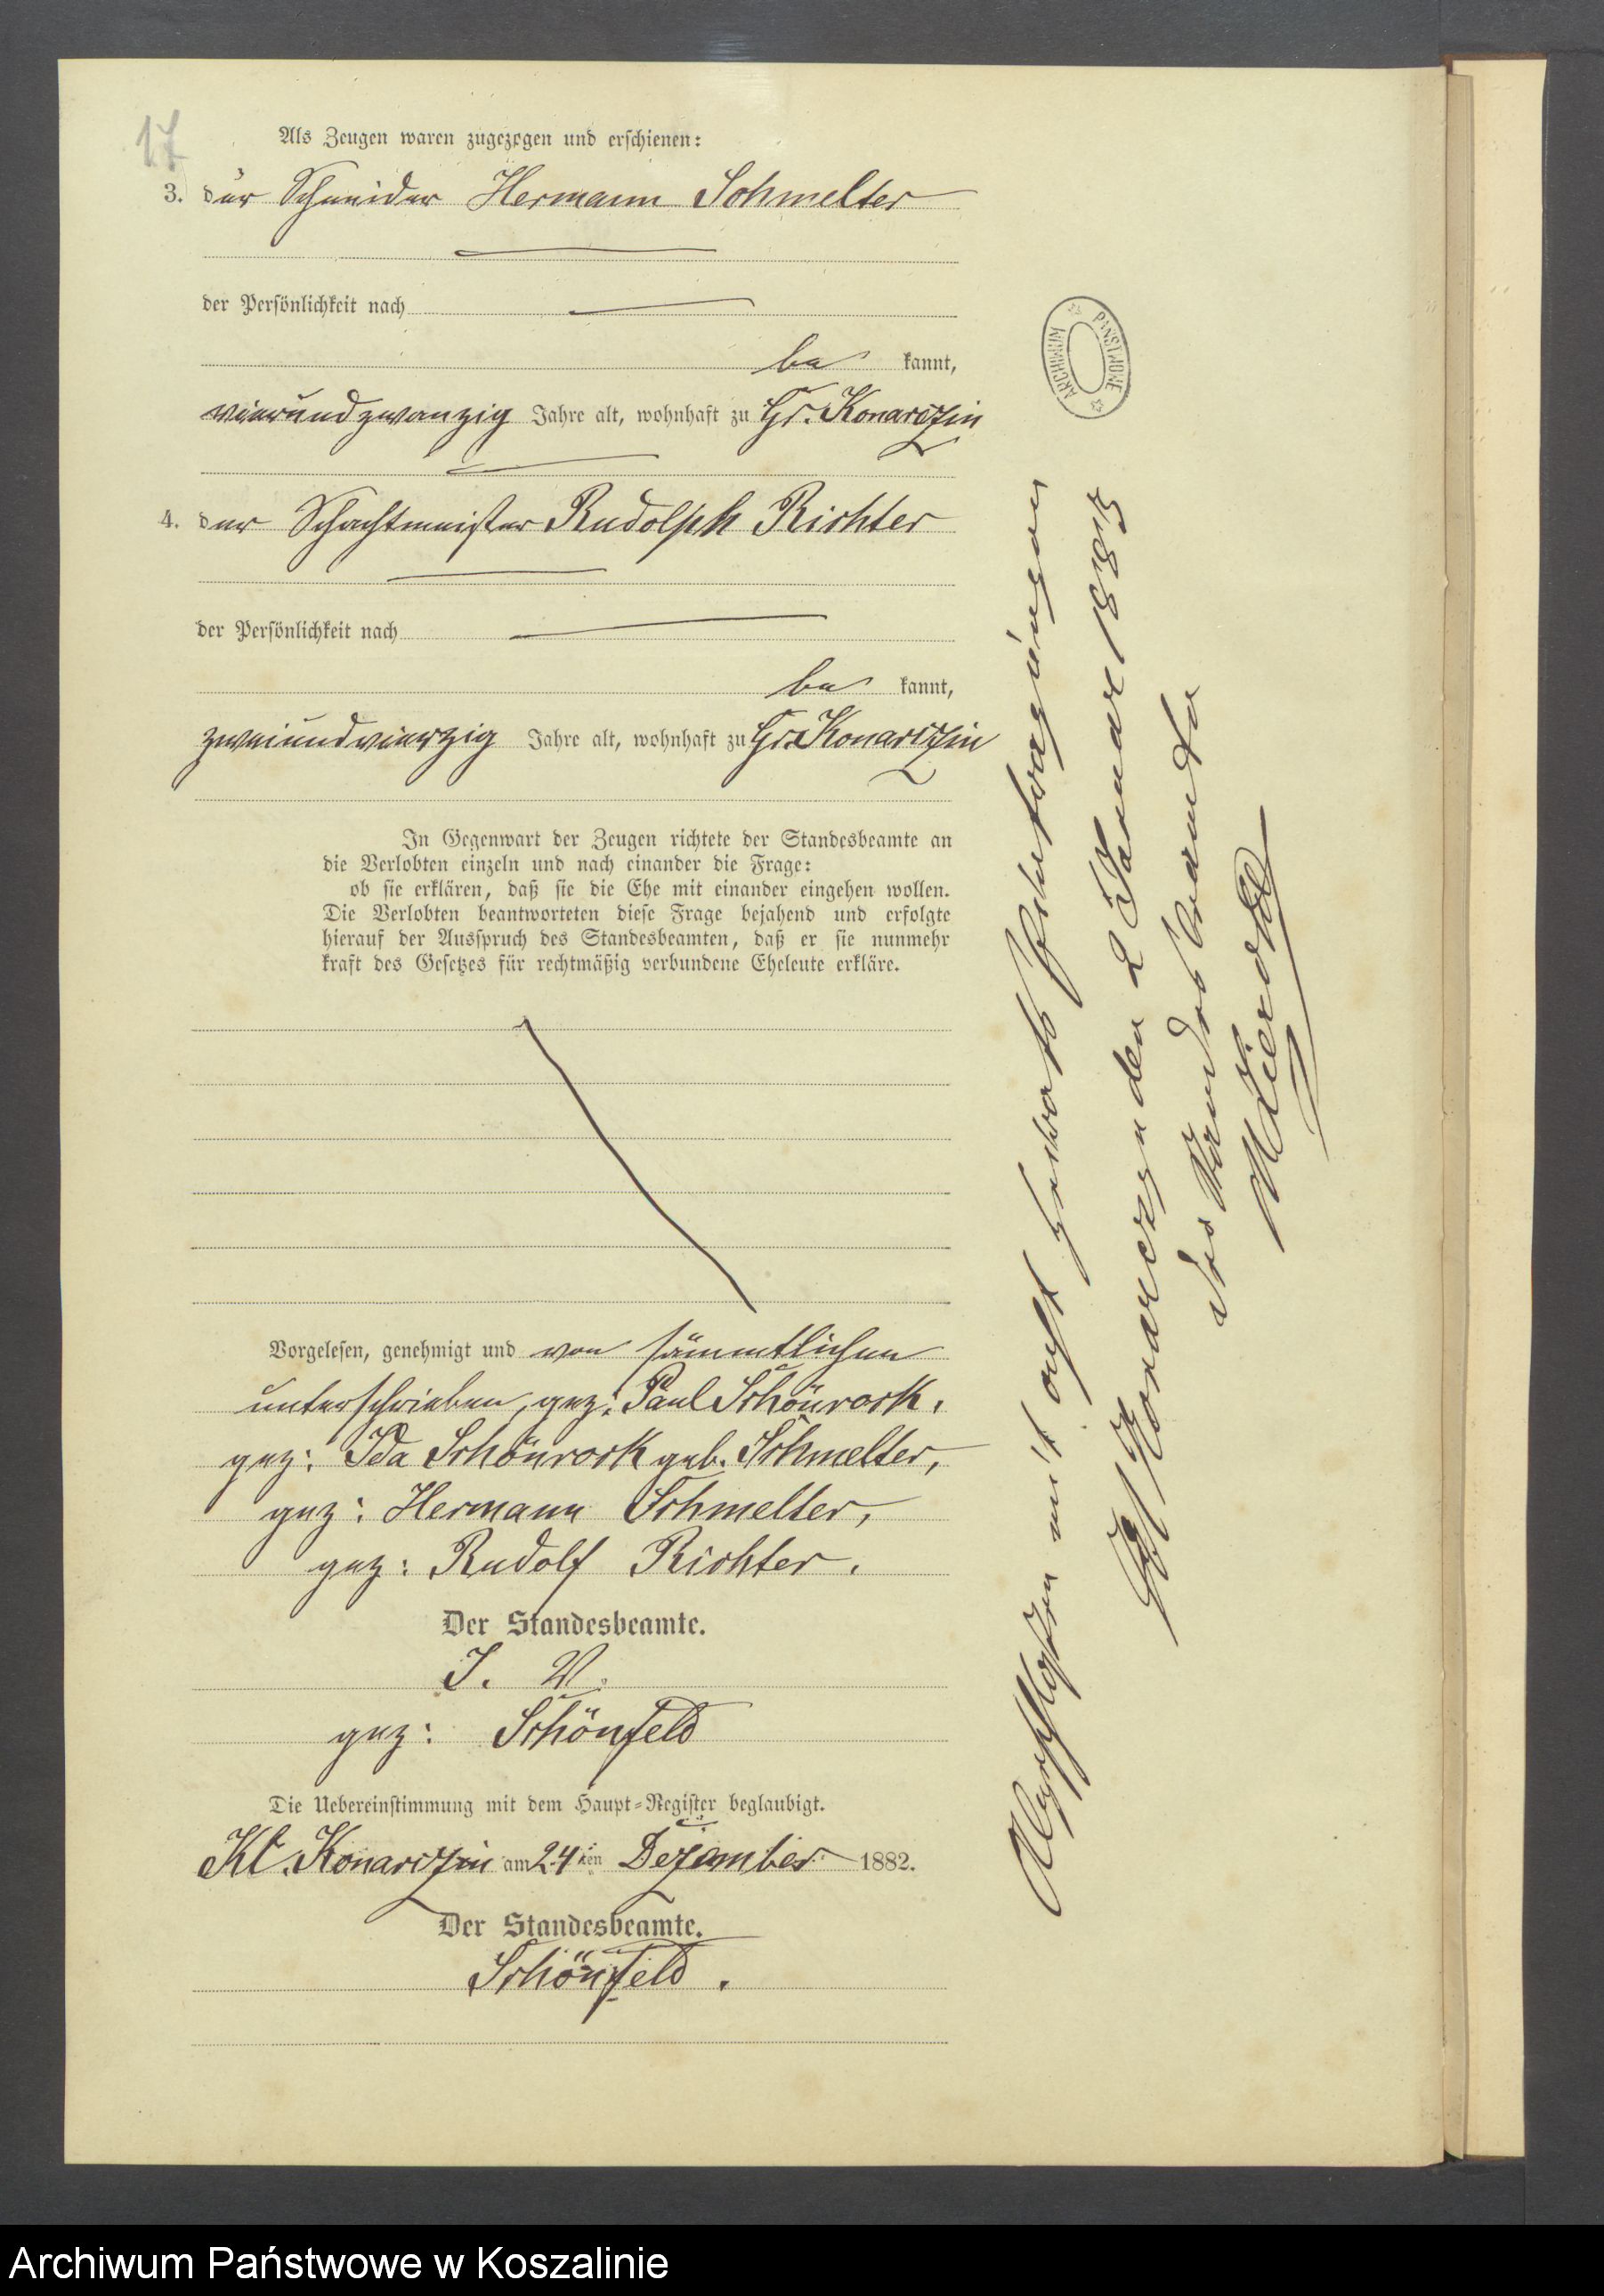 17
Als Zeugen waren zugezogen und erschienen:
3. der Schneider Hermann Schmelter
der Persönlichkeit nach
be kannt,
vierundzwanzig Jahre alt, wohnhaft zu Gr. Konarczin
4. der Schachtmeister Rudolph Richter
der Persönlichkeit nach
be kannt,
zweiundvierzig Jahre alt, wohnhaft zu Gr. Konarczin
In Gegenwart der Zeugen richtete der Standesbeamte an
die Verlobten einzeln und nach einander die Frage:
ob sie erklären, daß sie die Ehe mit einander eingehen wollen.
Die Verlobten beantworteten diese Frage bejahend und erfolgte
hierauf der Ausspruch des Standesbeamten, daß er sie nunmehr
kraft des Gesetzes für rechtmäßig verbundene Eheleute erkläre.
Vorgelesen, genehmigt und von sämmtlichen
unterschrieben, gez: Paul Schönrock.
gez: Ida Schönrock geb. Schmelter,
gez: Hermann Schmelter,
gez: Rudolf Richter.
Der Standesbeamte.
I. V.
gez: Schönfeld
Die Uebereinstimmung mit dem Haupt-Register beglaubigt.
Kl. Konarczin am 24 ten Dezember 1882.
Der Standesbeamte.
Schönfeld.
Abgeschlossen mit acht Heiraths Eintragungen
Konarczyn den 2 Januar 1883
Der Standesbeamte
ARCHIWUM PAŃSTWOWE
Archiwum Państwowe w Koszalinie